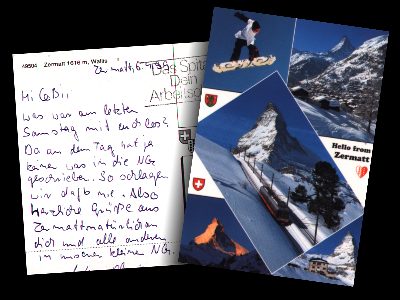 49504 Zermatt 1616 m, Wallis
Zermatt, 6.
Das Spital
Dein
Arbeits
Hi GaBii
was war am letzten
Samstag mit euch los?
Da an dem Tag hat ja
keiner was in die NG
geschrieben. So schlagen
wir daß nie. Also
Herzliche Grüße aus
Zermatt natürlich an
dich und alle anderen
in unserer kleine NG.
Hello from
Zermatt